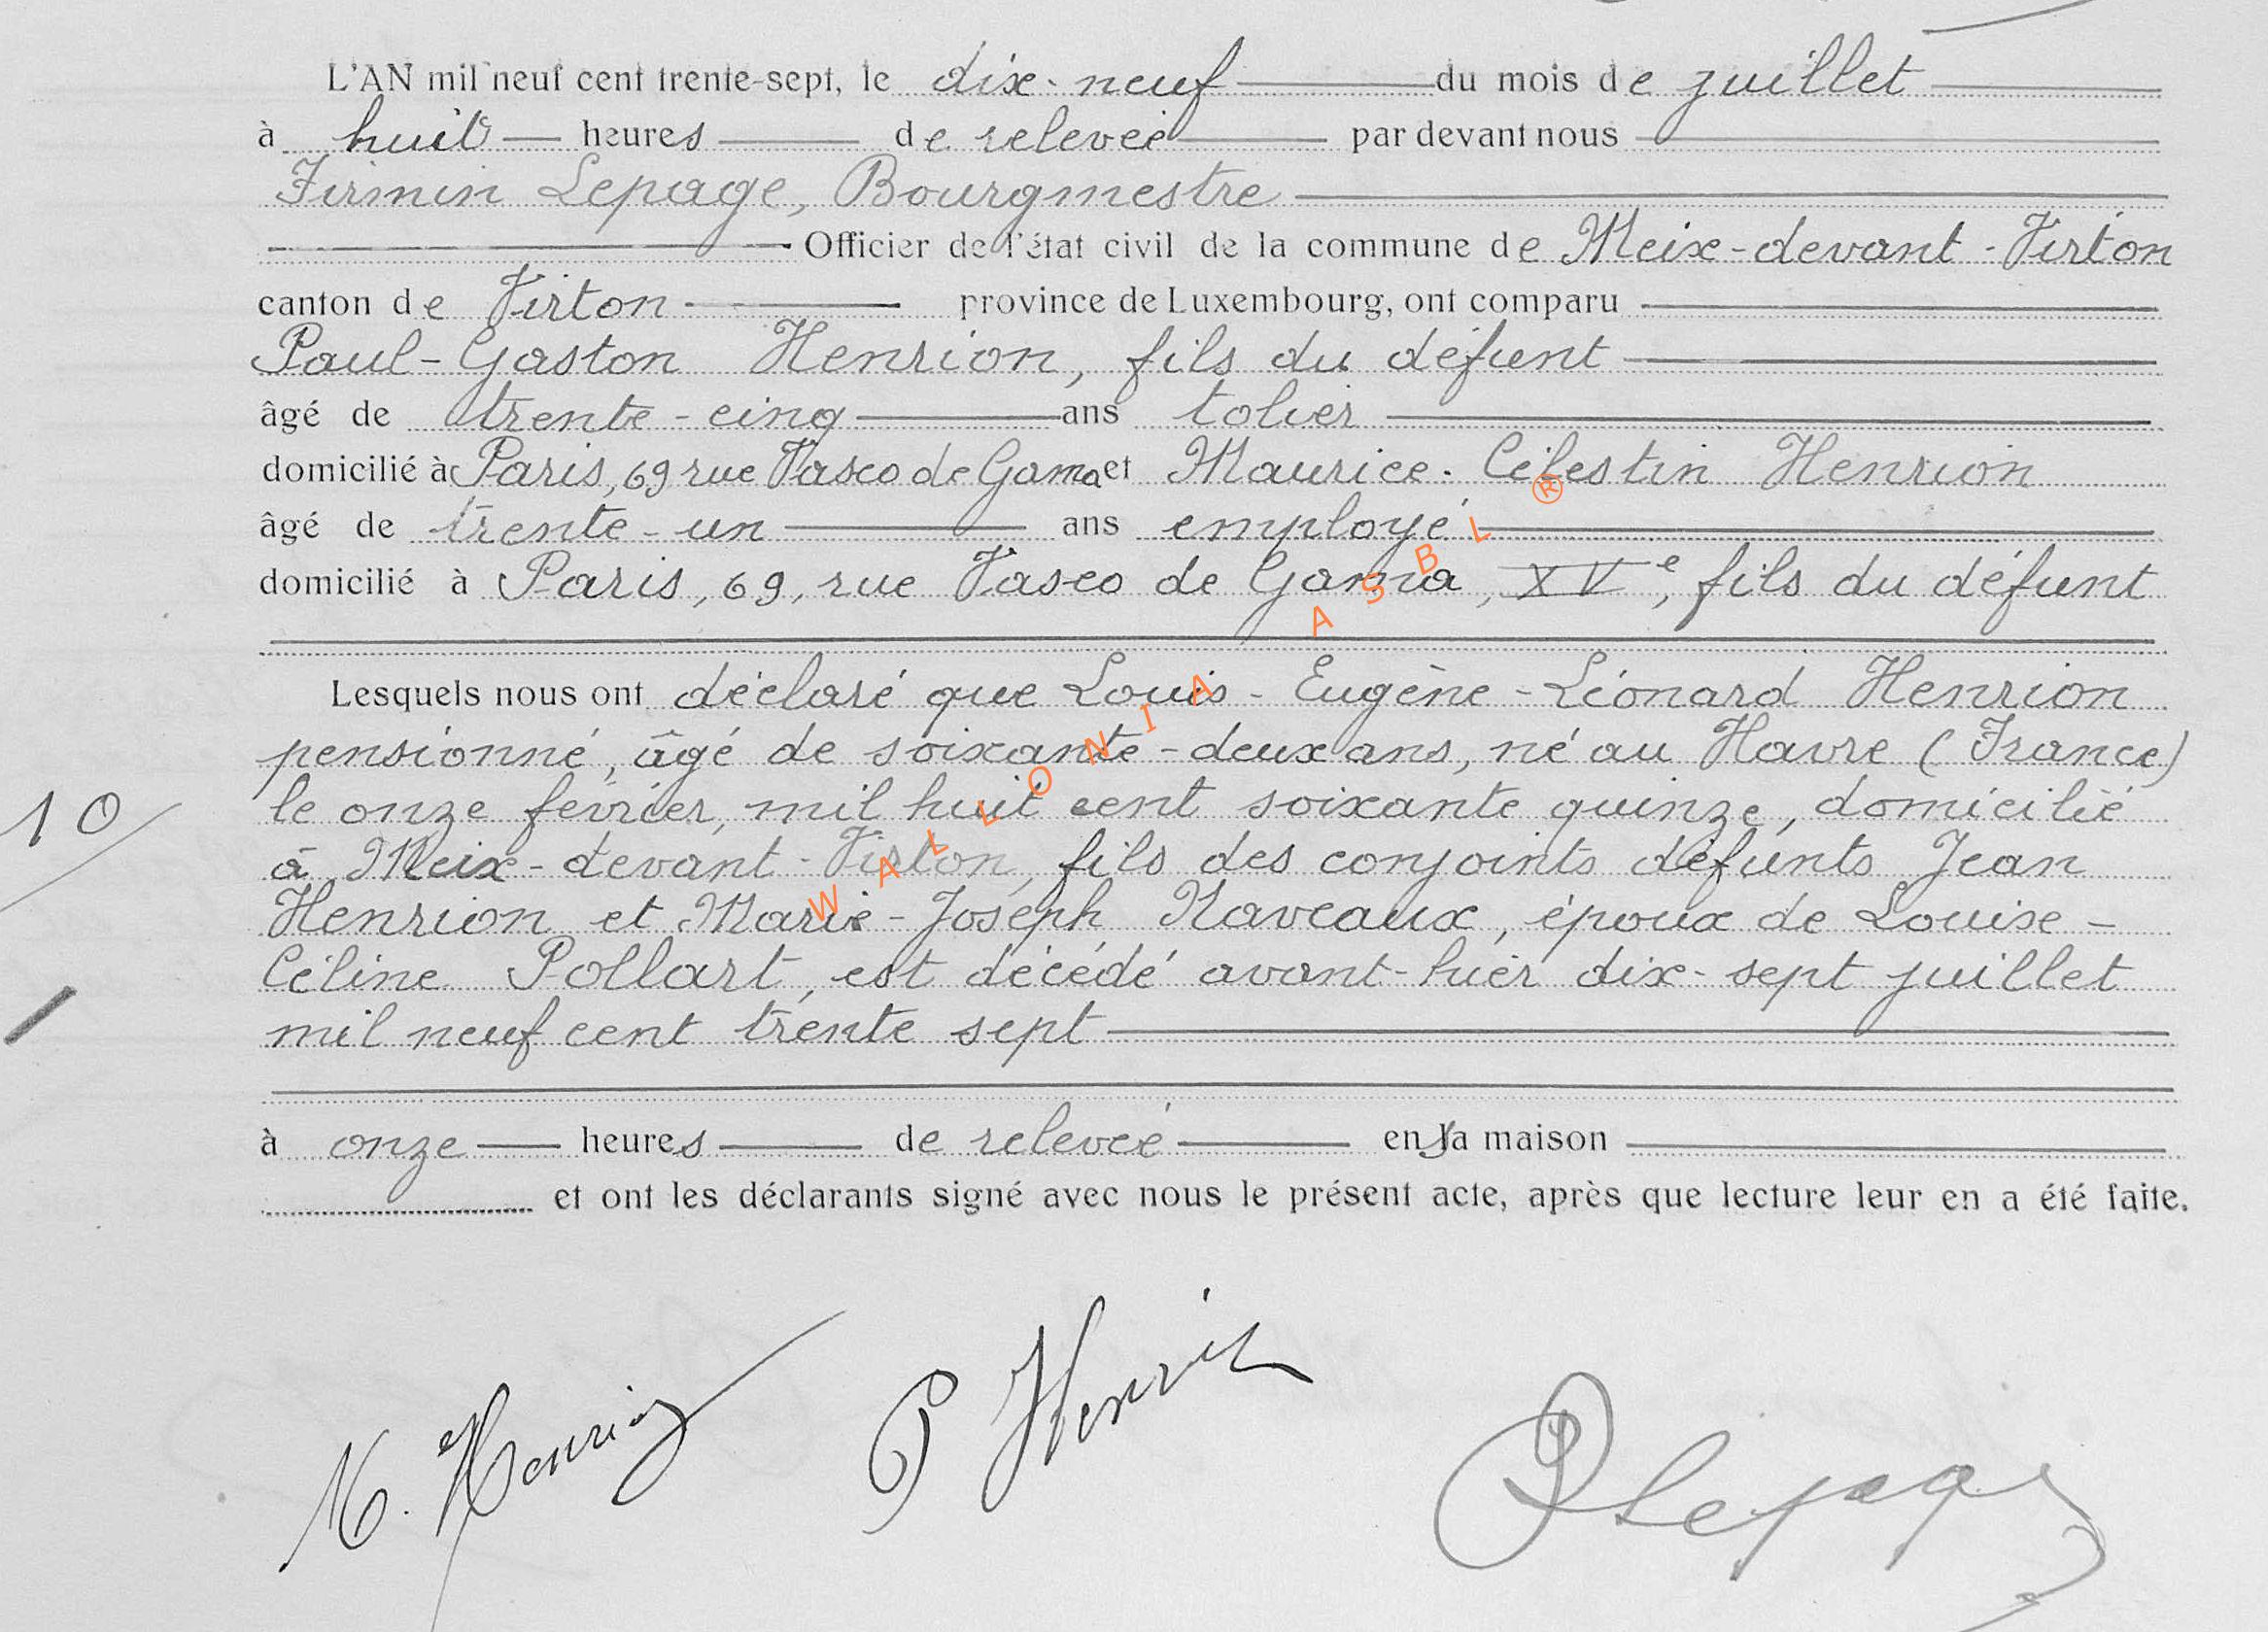 L'AN mil neuf cent trente-sept, le dix-neuf du mois de juillet
à huit heures de relevée par devant nous
Firmin Lepage, Bourgmestre
Officier de l'état civil de la commune de Meix-devant-Virton
canton de Virton province de Luxembourg, ont comparu
Paul-Gaston Henrion, fils du défunt
âgé de trente-cinq ans tolier
domicilié à Paris, 69 rue Vasco de Gama et Maurice-Célestin Henrion
âgé de trente-un ans employé
domicilié à Paris, 69, rue Vasco de Gama, XVe, fils du défunt
Lesquels nous ont déclaré que Louis-Eugène-Léonard Henrion
pensionné, âgé de soixante-deux ans, né au Havre (France)
le onze février, mil huit cent soixante quinze, domicilié
10
à Meix-devant-Virton, fils des conjoints défunts Jean
Henrion et Marie-Joseph Naveaux, époux de Louise-
Céline Pollart, est décédé avant-hier dix-sept juillet
mil neuf cent trente sept
à onze heures de relevée en sa maison
et ont les déclarants signé avec nous le présent acte, après que lecture leur en a été faite.
M. Henrion P Henrion Lepage
WALLONIA ASBL ®